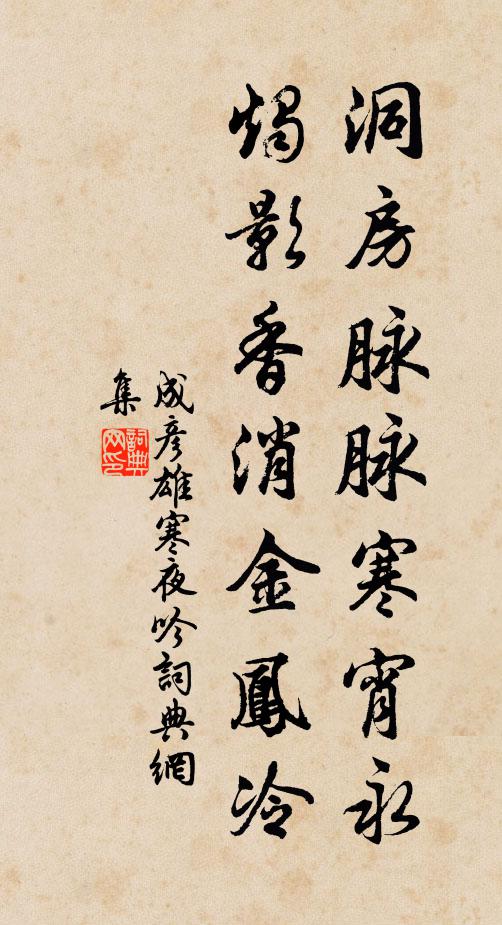 洞房脉脉寒宵永
燭影香消金鳳冷
成彥雄寒夜吟詞典網
集
詞典
网印